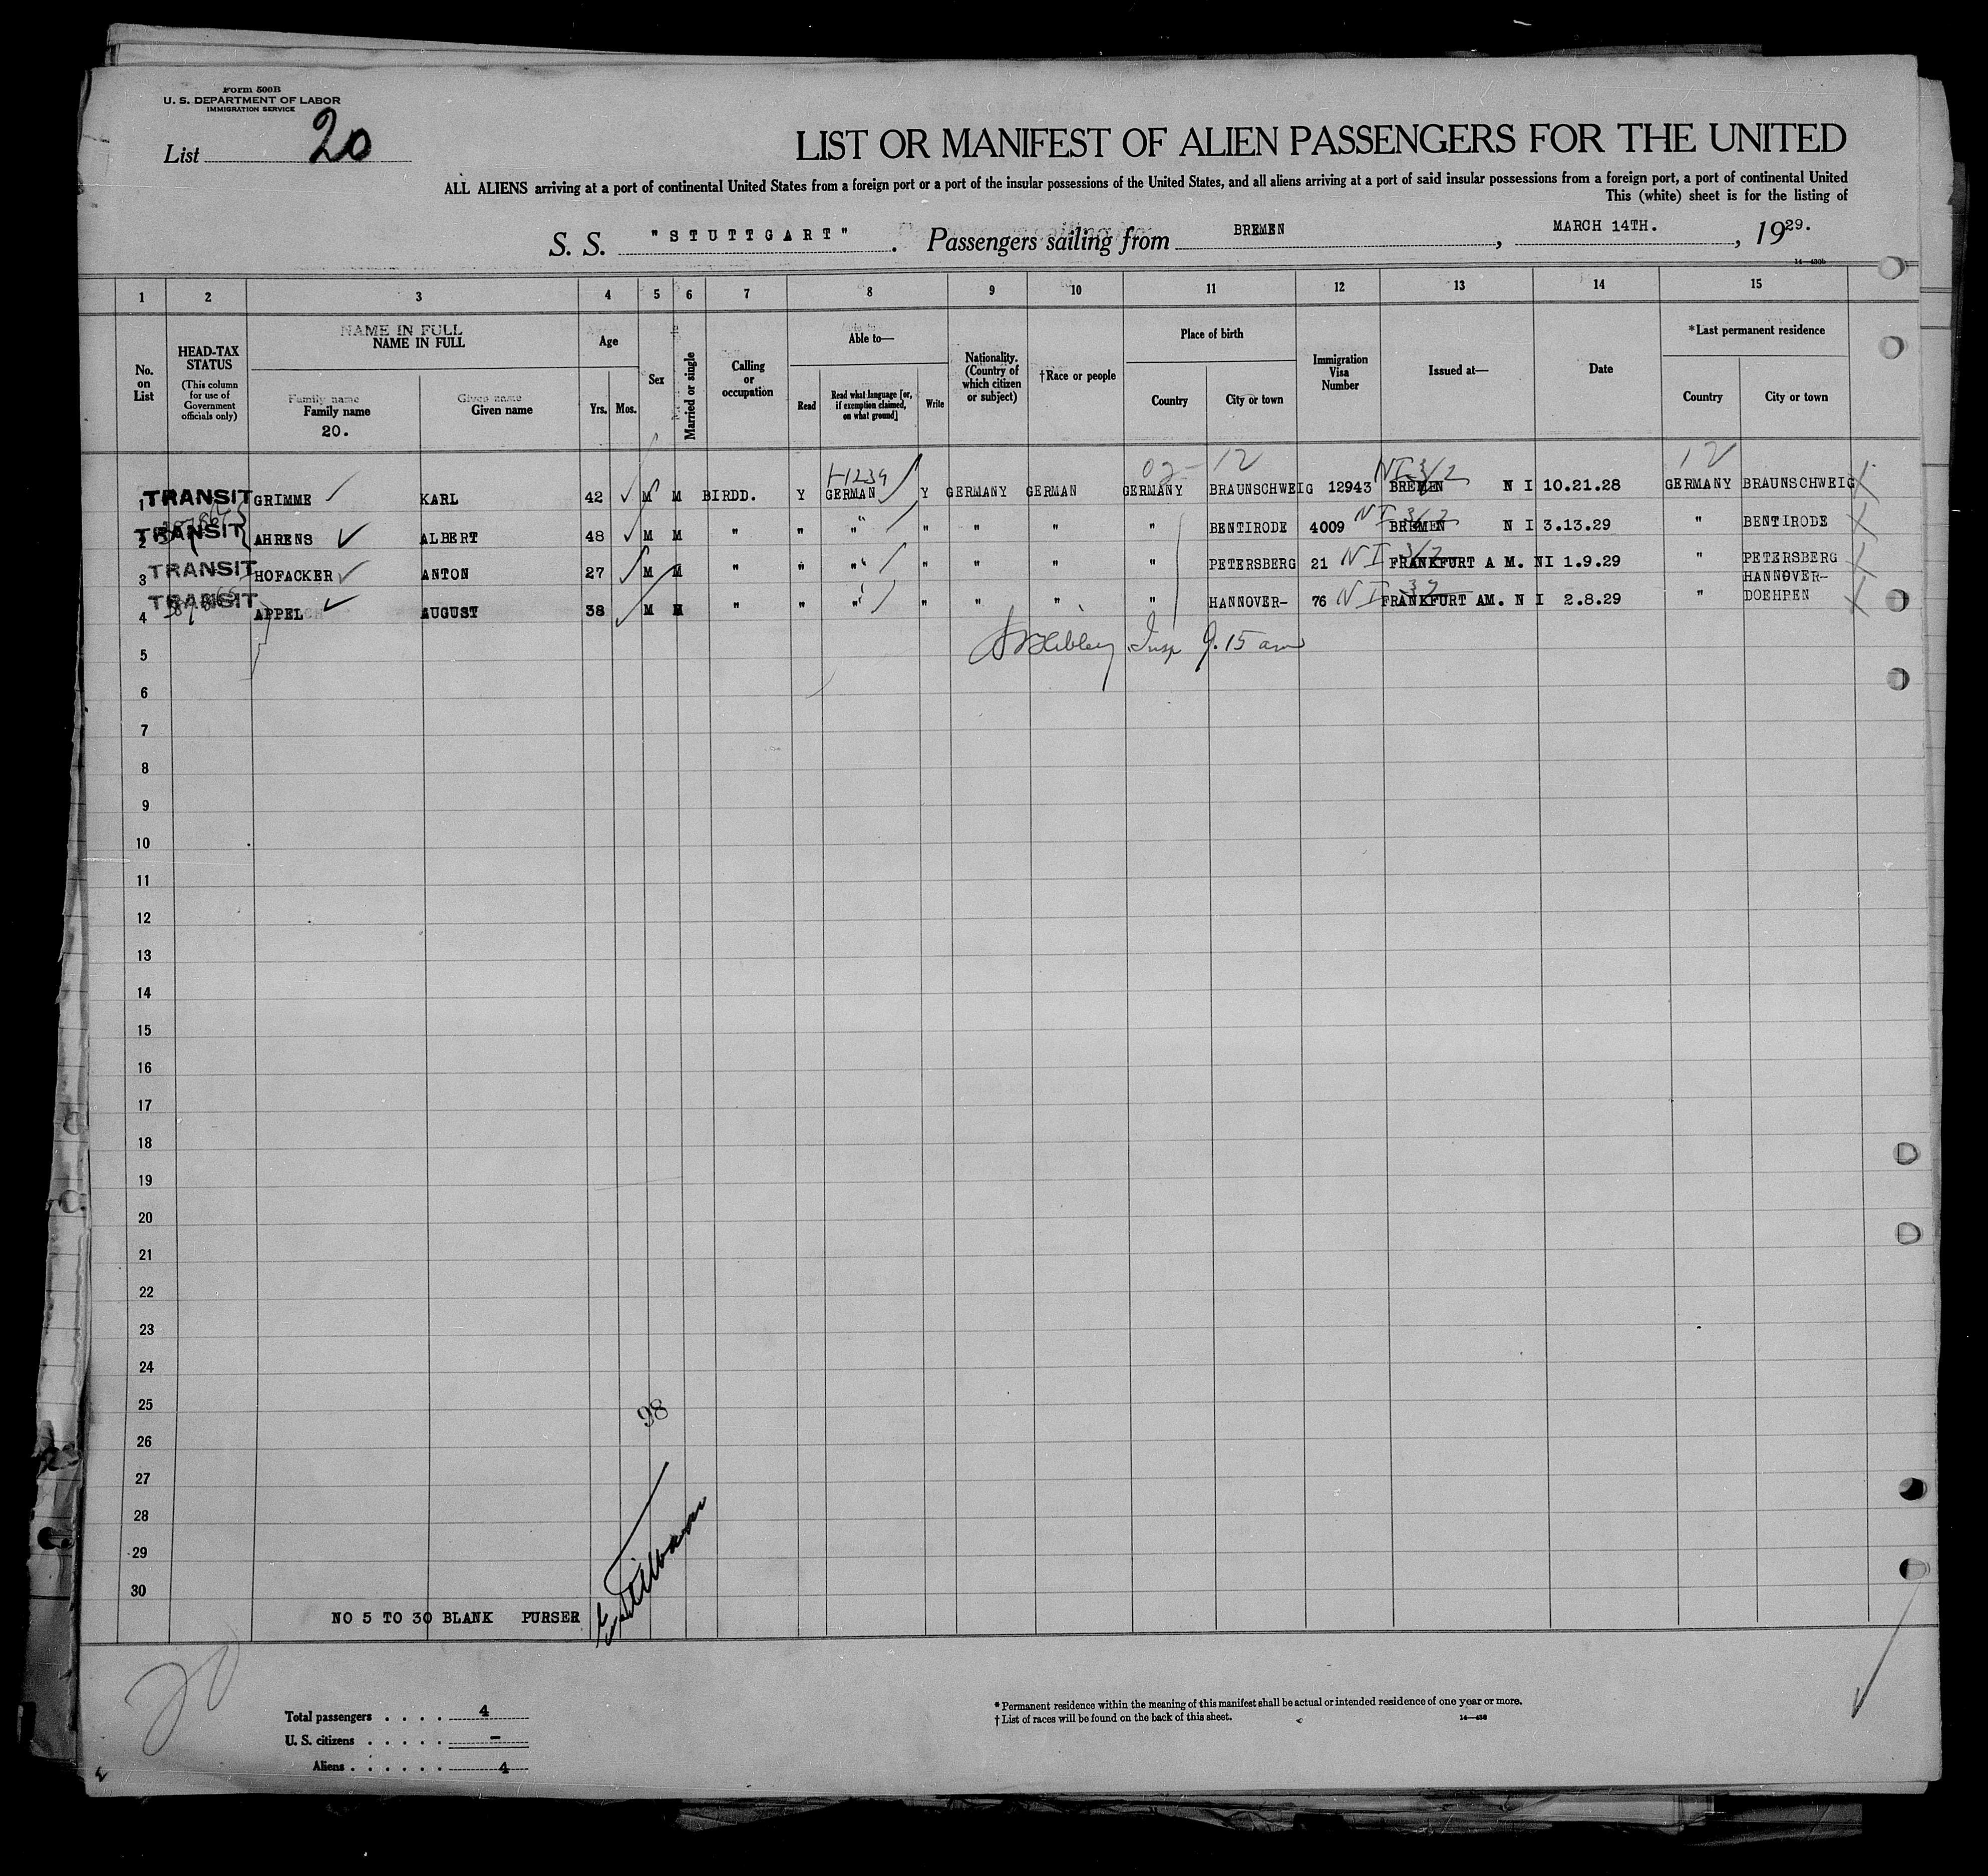 Form 500B
U. S. DEPARTMENT OF LABOR
IMMIGRATION SERVICE
List 20
LIST OR MANIFEST OF ALIEN PASSENGERS FOR THE UNITED
ALL ALIENS arriving at a port of continental United States from a foreign port or a port of the insular possessions of the United States, and all aliens arriving at a port of said insular possessions from a foreign port, a port of continental United
This (white) sheet is for the listing of
S. S. "STUTTGART". Passengers sailing from BREMEN, MARCH 14TH., 1929.
14—430b
1 2 3 4 5 6 7 8 9 10 11 12 13 14 15
No. on List
HEAD-TAX STATUS
(This column for use of Government officials only)
NAME IN FULL
NAME IN FULL
Family name
Family name
20.
Given name
Given name
Age
Yrs. Mos.
Sex
Married or single
Calling or occupation
Able to—
Read
Read what language [or, if exemption claimed, on what ground]
Write
Nationality. (Country of which citizen or subject)
†Race or people
Place of birth
Country
City or town
Immigration Visa Number
Issued at—
Date
*Last permanent residence
Country
City or town
1-1239 02- 12 NI 3/2 12
1 TRANSIT GRIMME KARL 42 M M BIRDD. Y GERMAN Y GERMANY GERMAN GERMANY BRAUNSCHWEIG 12943 BREMEN N I 10.21.28 GERMANY BRAUNSCHWEIG
2 TRANSIT AHRENS ALBERT 48 M M " " " " " " " BENTIRODE 4009 NI 3/2 BREMEN N I 3.13.29 " BENTIRODE
3 TRANSIT HOFACKER ANTON 27 M M " " " " " " " PETERSBERG 21 NI 3/2 FRANKFURT A M. NI 1.9.29 " PETERSBERG
4 TRANSIT APPEL AUGUST 38 M M " " " " " " " HANNOVER- 76 NI 32 FRANKFURT AM. N I 2.8.29 " HANNOVER-DOEHREN
5 Insp 9.15 am
6
7
8
9
10
11
12
13
14
15
16
17
18
19
20
21
22
23
24
25
98
26
27
28
29
30
NO 5 TO 30 BLANK PURSER
20
Total passengers . . . . 4
U. S. citizens . . . . . -
Aliens . . . . . . 4
* Permanent residence within the meaning of this manifest shall be actual or intended residence of one year or more.
† List of races will be found on the back of this sheet.
14—430